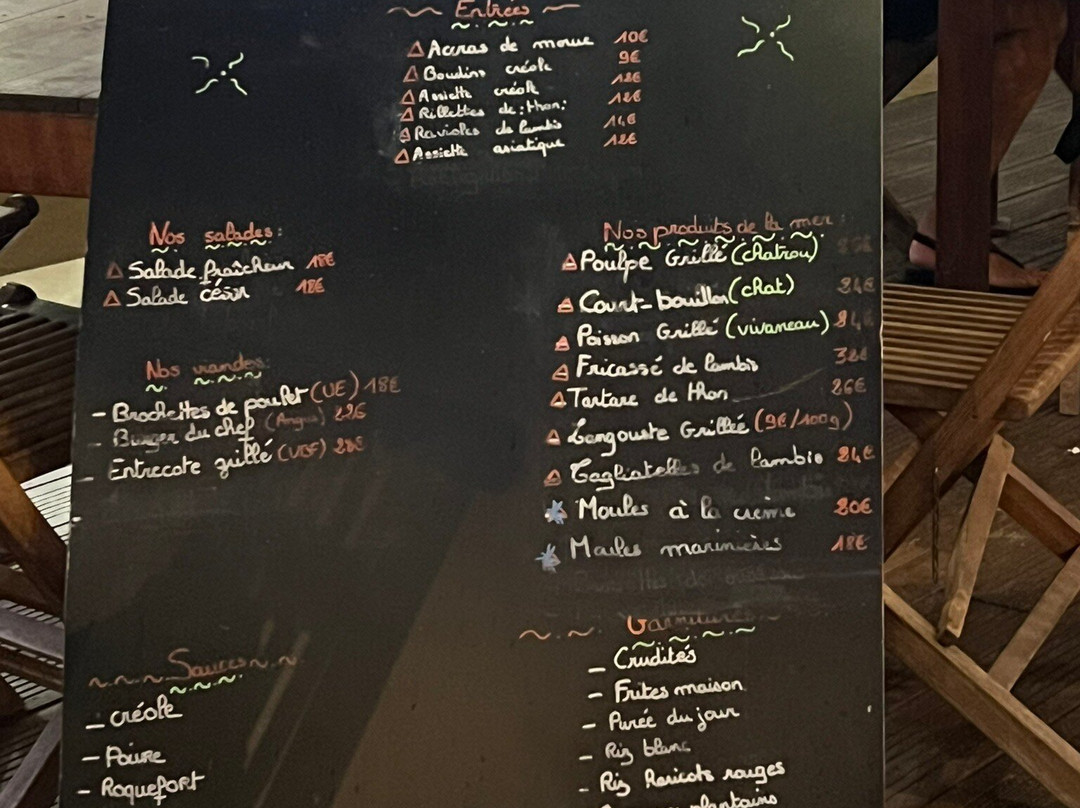 Entrées
Accras de morue 10€
Boudins créole 9€
Assiette créole 12€
Rillettes de thon 12€
Ravioles de lambis 14€
Assiette asiatique 12€
Nos salades:
Salade fraîcheur 18€
Salade césar 18€
Nos viandes:
- Brochettes de poulet (UE) 18€
- Burger du chef (Angus) 22€
- Entrecote grillé (VBF) 28€
Nos produits de la mer:
Poulpe Grillé (chatrou)
Court-bouillon (chat) 24€
Poisson Grillé (vivaneau) 24€
Fricassé de lambis 32€
Tartare de thon 26€
Langouste Grilleé (9€/100g)
Tagliatelles de lambis 24€
Moules à la crème 20€
Moules marinières 18€
Sauces
- créole
- Poivre
- Roquefort
Garnitures
- Crudités
- Frites maison
- Purée du jour
- Riz blanc
- Riz Haricots rouges
plantains